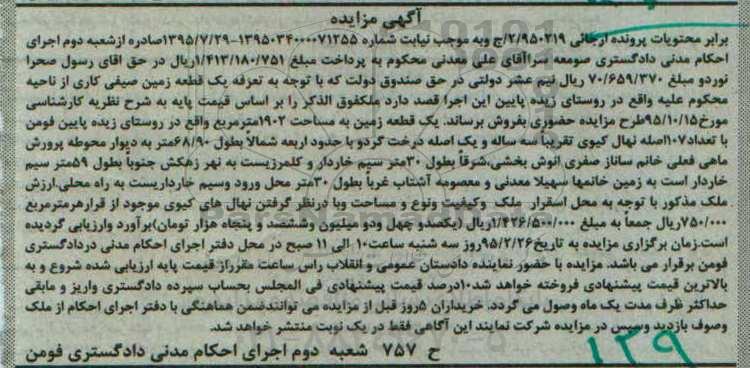 آگهی مزایده
برابر محتویات پرونده ارجائی ۲/۹۵۰۲۱۹/ج وبه موجب نیابت شماره ۱۳۹۵۰۳۴۰۰۰۰۷۱۲۵۵-۱۳۹۵/۷/۲۹صادره ازشعبه دوم اجرای
احکام مدنی دادگستری صومعه سراآقای علی معدنی محکوم به پرداخت مبلغ ۱/۴۱۳/۱۸۰/۷۵۱ریال در حق اقای رسول صحرا
نوردو مبلغ ۷۰/۶۵۹/۳۷۰ ریال نیم عشر دولتی در حق صندوق دولت که با توجه به تعرفه یک قطعه زمین صیفی کاری از ناحیه
محکوم علیه واقع در روستای زیده پایین این اجرا قصد دارد ملکفوق الذکر را بر اساس قیمت پایه به شرح نظریه کارشناسی
مورخ۹۵/۱۰/۱۵طرح مزایده حضوری بفروش برساند. یک قطعه زمین به مساحت ۱۹۰۲مترمربع واقع در روستای زیده پایین فومن
با تعداد۱۰۷اصله نهال کیوی تقریبا سه ساله و یک اصله درخت گردو با حدود اربعه شمالاً بطول ۶۸/۹۰متر به دیوار محوطه پرورش
ماهی فعلی خانم ساناز صفری انوش بخشی،شرقاً بطول ۳۰متر سیم خاردار و کلمرزیست به نهر زهکش جنوباً بطول ۵۹متر سیم
خاردار است به زمین خانمها سهیلا معدنی و معصومه آشتاب غرباً بطول ۳۰متر محل ورود وسیم خارداریست به راه محلی.ارزش
ملک مذکور با توجه به محل استقرار ملک وکیفیت ونوع و مساحت وبا درنظر گرفتن نهال های کیوی موجود از قرارهرمترمربع
۷۵۰/۰۰۰ریال جمعاً به مبلغ ۱/۴۲۶/۵۰۰/۰۰۰ریال (یکصدو چهل ودو میلیون وششصد و پنجاه هزار تومان)برآورد وارزیابی گردیده
است.زمان برگزاری مزایده به تاریخ۹۵/۲/۲۶روز سه شنبه ساعت۱۰ الی ۱۱ صبح در محل دفتر اجرای احکام مدنی دردادگستری
فومن برقرار می باشد. مزایده با حضور نماینده دادستان عمومی و انقلاب راس ساعت مقرراز قیمت پایه ارزیابی شده شروع و به
بالاترین قیمت پیشنهادی فروخته خواهد شد.۱۰درصد قیمت پیشنهادی فی المجلس بحساب سپرده دادگستری واریز و مابقی
حداکثر ظرف مدت یک ماه وصول می گردد. خریداران ۵روز قبل از مزایده می توانندضمن هماهنگی با دفتر اجرای احکام از ملک
وصوف بازدید وسپس در مزایده شرکت نمایند این آگاهی فقط در یک نوبت منتشر خواهد شد.
ح ۷۵۷ شعبه دوم اجرای احکام مدنی دادگستری فومن
۱۳۹